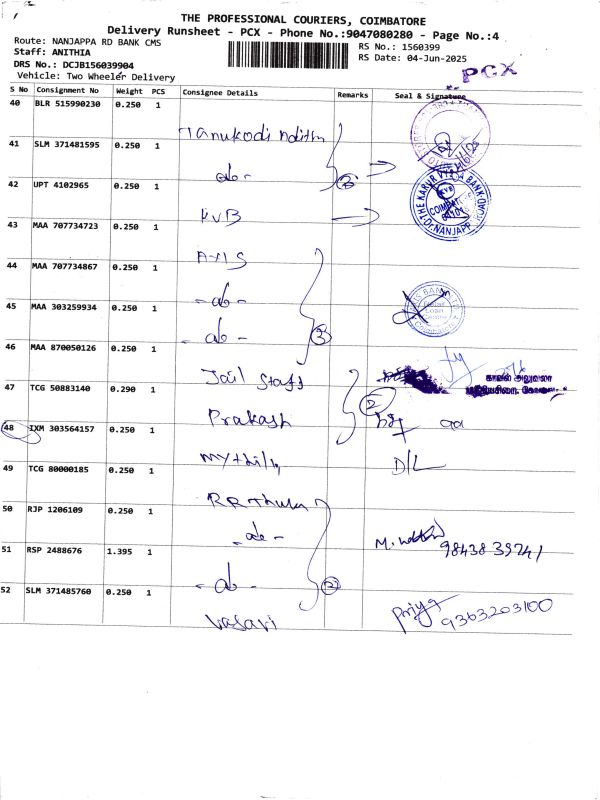 THE PROFESSIONAL COURIERS, COIMBATORE
Delivery Runsheet - PCX - Phone No.:9047080280 - Page No.:4
Route: NANJAPPA RD BANK CMS
RS No.: 1560399
Staff: ANITHIA
RS Date: 04-Jun-2025
DRS No.: DCJB156039904
Vehicle: Two Wheeler Delivery
PCX
S No Consignment No Weight PCS Consignee Details Remarks Seal & Signature
40 BLR 515990230 0.250 1
41 SLM 371481595 0.250 1
42 UPT 4102965 0.250 1
KVB
43 MAA 707734723 0.250 1
AXIS
44 MAA 707734867 0.250 1
45 MAA 303259934 0.250 1
3
46 MAA 870050126 0.250 1
Jail Staff
47 TCG 50883140 0.290 1
2
Prakash
48 IXM 303564157 0.250 1
Mythily
D/L
49 TCG 80000185 0.250 1
50 RJP 1206109 0.250 1
9843839741
51 RSP 2488676 1.395 1
2
52 SLM 371485760 0.250 1
Vasavi
Priya
9363203100